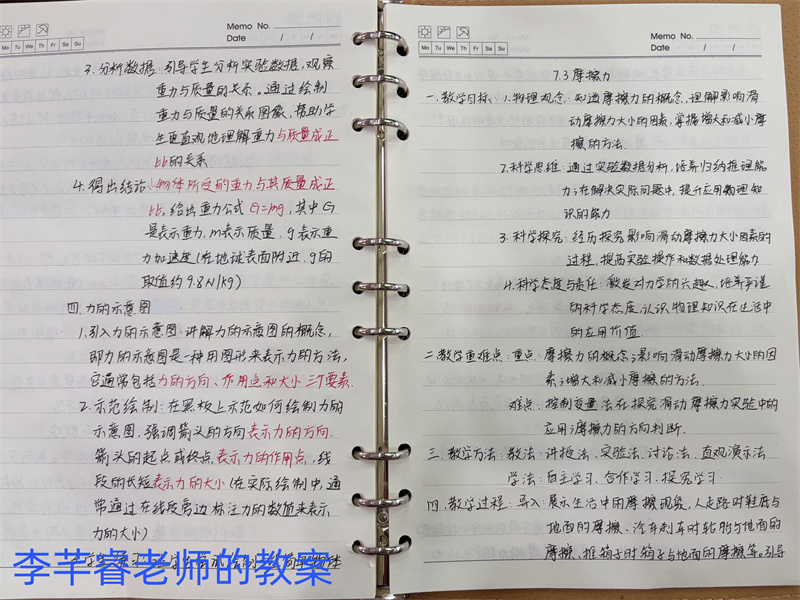 Memo No.
Mo Tu We Th Fr Sa Su
Date / /
3. 分析数据: 引导学生分析实验数据, 观察
重力与质量的关系。通过绘制
重力与质量的关系图像, 帮助学
生更直观地理解重力与质量成正
比的关系
4. 得出结论: 物体所受的重力与其质量成正
比。给出重力公式 G=mg, 其中G
是表示重力, m表示质量, g表示重
力加速度(在地球表面附近, g的
取值约9.8N/kg)
四. 力的示意图
1. 引入力的示意图: 讲解力的示意图的概念,
即力的示意图是一种用图形来表示力的方法,
它通常包括力的方向、作用点和大小三个要素.
2. 示范绘制: 在黑板上示范如何绘制力的
示意图, 强调箭头的方向表示力的方向.
箭头的起点或终点表示力的作用点, 线
段的长短表示力的大小(在实际绘制中, 通
常通过在线段旁边标注力的数值来表示
力的大小)
李芊睿老师的教案
Memo No.
Mo Tu We Th Fr Sa Su
Date / /
7.3 摩擦力
一. 教学目标: 1. 物理观念: 知道摩擦力的概念, 理解影响滑
动摩擦力大小的因素, 掌握增大和减小摩
擦的方法.
2. 科学思维: 通过实验数据分析, 培养归纳推理能
力; 在解决实际问题中, 提升应用物理知
识的能力
3. 科学探究: 经历探究影响滑动摩擦力大小因素的
过程, 提高实验操作和数据处理能力
4. 科学态度与责任: 激发对力学的兴趣, 培养严谨
的科学态度, 认识物理知识在生活中
的应用价值.
二. 教学重难点: 重点: 摩擦力的概念; 影响滑动摩擦力大小的因
素; 增大和减小摩擦的方法.
难点: 控制变量法在探究滑动摩擦力实验中的
应用; 摩擦力的方向判断.
三. 教学方法: 教法: 讲授法、实验法、讨论法、直观演示法
学法: 自主学习、合作学习、探究学习.
四. 教学过程: 导入: 展示生活中的摩擦现象, 人走路时鞋底与
地面的摩擦、汽车刹车时轮胎与地面的
摩擦、推箱子时箱子与地面的摩擦等。引导